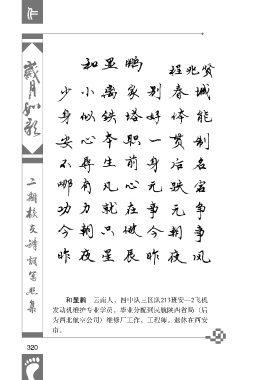 岁月如歌
二期校友诗词写照集
和星鹏
程兆贤
少小离家别春城
身似铁塔好体能
安心本职一贯制
不 生前身后名
哪有凡心
功力就在事无争
今朝只做今朝事
昨夜星辰昨夜风
和星鹏 云南人，四中队三区队213班安—2飞机
发动机维护专业学员，毕业分配到民航陕西省局（后
为西北航空公司）维修厂工作，工程师，退休在西安
市。
320